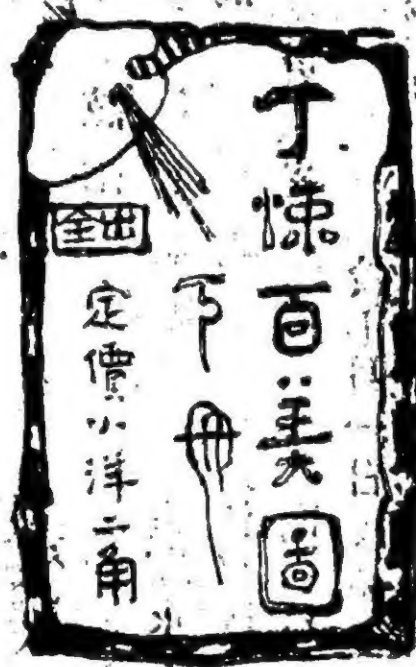 丁悚百美圖
下冊
全出
定價小洋二角